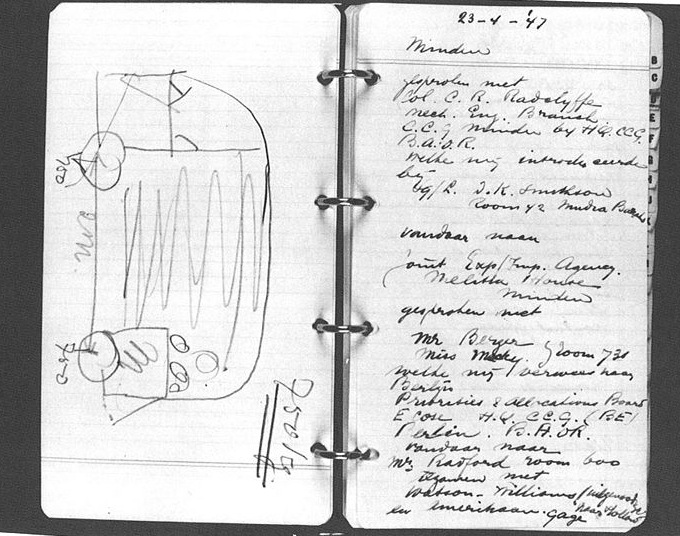 750
750
750/kg
23-4-'47
Minden
gesproken met
Col. C. R. Radclyffe
Mech. Eng. Branch
C.C.G Minden by HQ. CCG.
B.A.O.R.
welke mij introduceerde
bij
Sq/L. J.K. Smithson
Room 42
vandaar naar
Joint Exp/Imp. Agency.
Melitta House
Minden
gesproken met
Mr Berger
Miss room 731
welke mij verwees naar
Berlijn
Priorities & Allocations Board
E Cose H.Q. C.C.G. (BE)
Berlin. B.A.O.R.
vandaar naar
Mr. Radford room 600
tezamen met
Watson-Williams
en Amerikaan. Gage
B
C
D
E
F